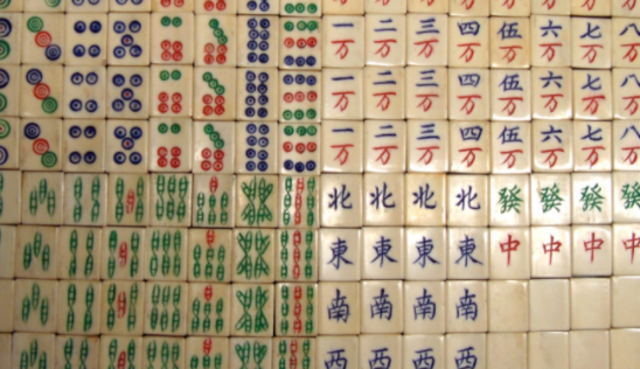 一 二 三 四 伍 六 七 八
万 万 万 万 万 万 万 万
一 二 三 四 伍 六 七 八
万 万 万 万 万 万 万 万
一 二 三 四 伍 六 七 八
万 万 万 万 万 万 万 万
北 北 北 北 發 發 發 發
東 東 東 東 中 中 中 中
南 南 南 南
西 西 西 西